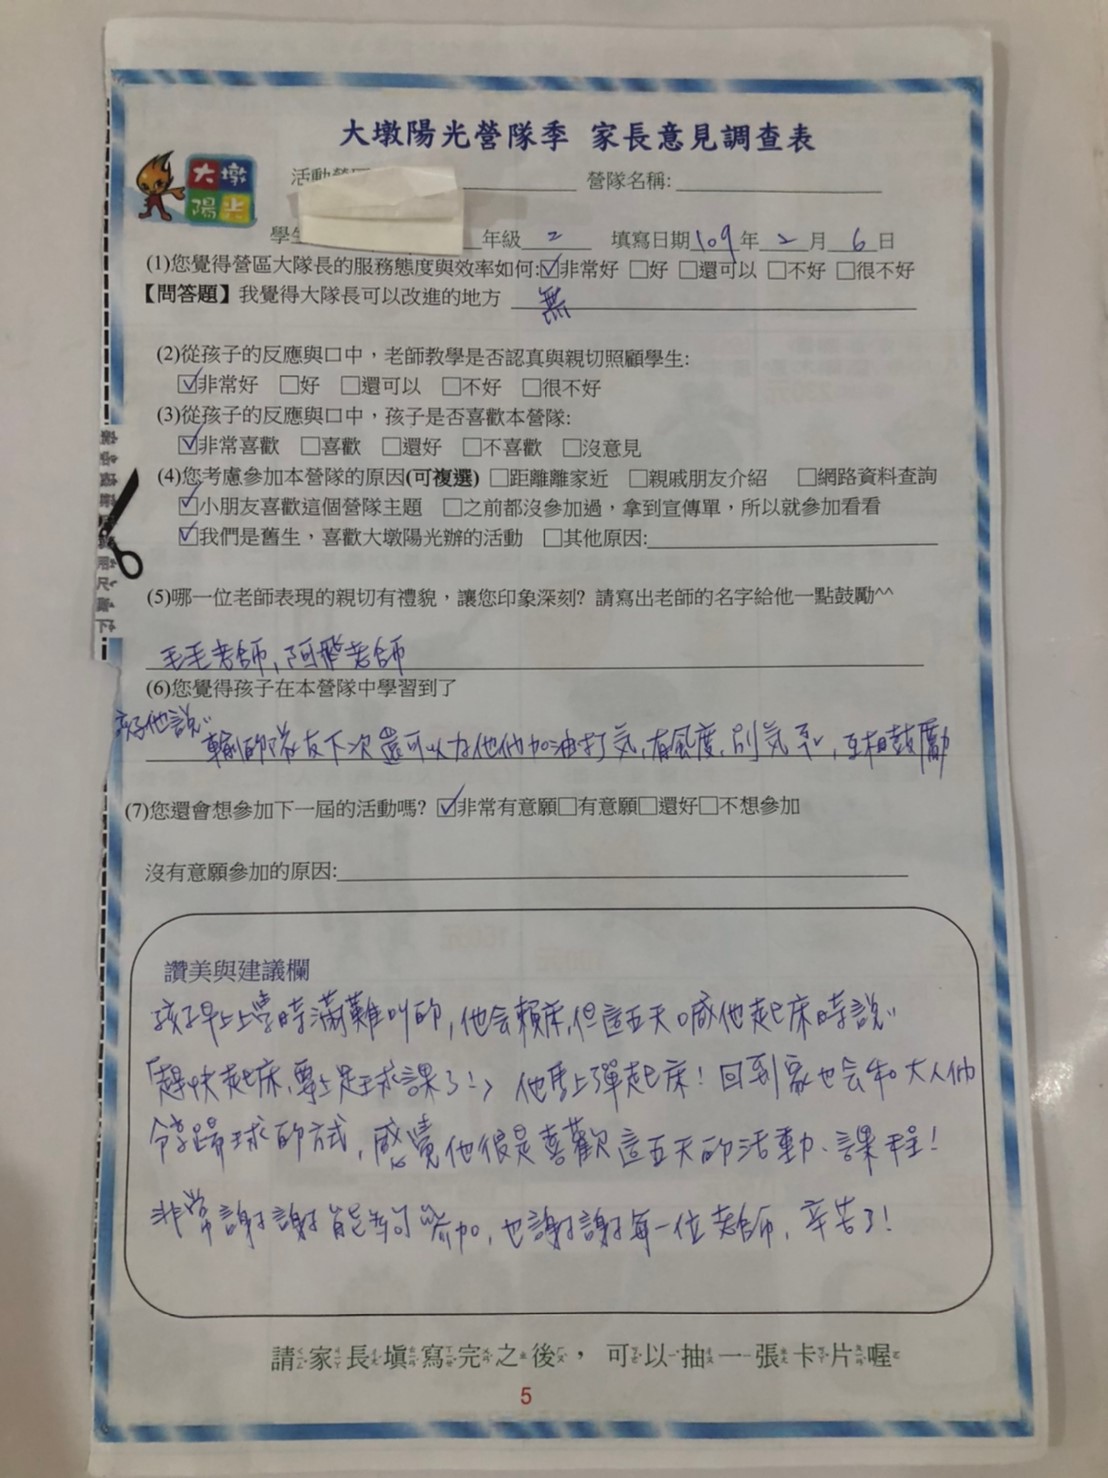 大墩陽光營隊季 家長意見調查表
大墩
陽光
活動營 營隊名稱:
學生 年級 2 填寫日期 109 年 2 月 6 日
(1)您覺得營區大隊長的服務態度與效率如何:☑非常好 □好 □還可以 □不好 □很不好
【問答題】我覺得大隊長可以改進的地方 無
(2)從孩子的反應與口中，老師教學是否認真與親切照顧學生:
☑非常好 □好 □還可以 □不好 □很不好
(3)從孩子的反應與口中，孩子是否喜歡本營隊:
☑非常喜歡 □喜歡 □還好 □不喜歡 □沒意見
(4)您考慮參加本營隊的原因(可複選) □距離離家近 □親戚朋友介紹 □網路資料查詢
☑小朋友喜歡這個營隊主題 □之前都沒參加過，拿到宣傳單，所以就參加看看
☑我們是舊生，喜歡大墩陽光辦的活動 □其他原因:
(5)哪一位老師表現的親切有禮貌，讓您印象深刻? 請寫出老師的名字給他一點鼓勵^^
毛毛老師,阿飛老師
(6)您覺得孩子在本營隊中學習到了
孩子他說:
輸的隊友下次還可以為他們加油打気,有風度,別気系,互相鼓勵
(7)您還會想參加下一屆的活動嗎? ☑非常有意願□有意願□還好□不想參加
沒有意願參加的原因:
讚美與建議欄
孩子早上上學時滿難叫的,他会賴床,但這五天喊他起床時說:
「趕快起床,要上足球課了!」他馬上彈起床!回到家也会和大人他
分享踢球的方式,感覺他很是喜歡這五天的活動、課程!
非常謝謝能夠參加,也謝謝每一位老師,辛苦了!
請家長填寫完之後，可以抽一張卡片喔
5